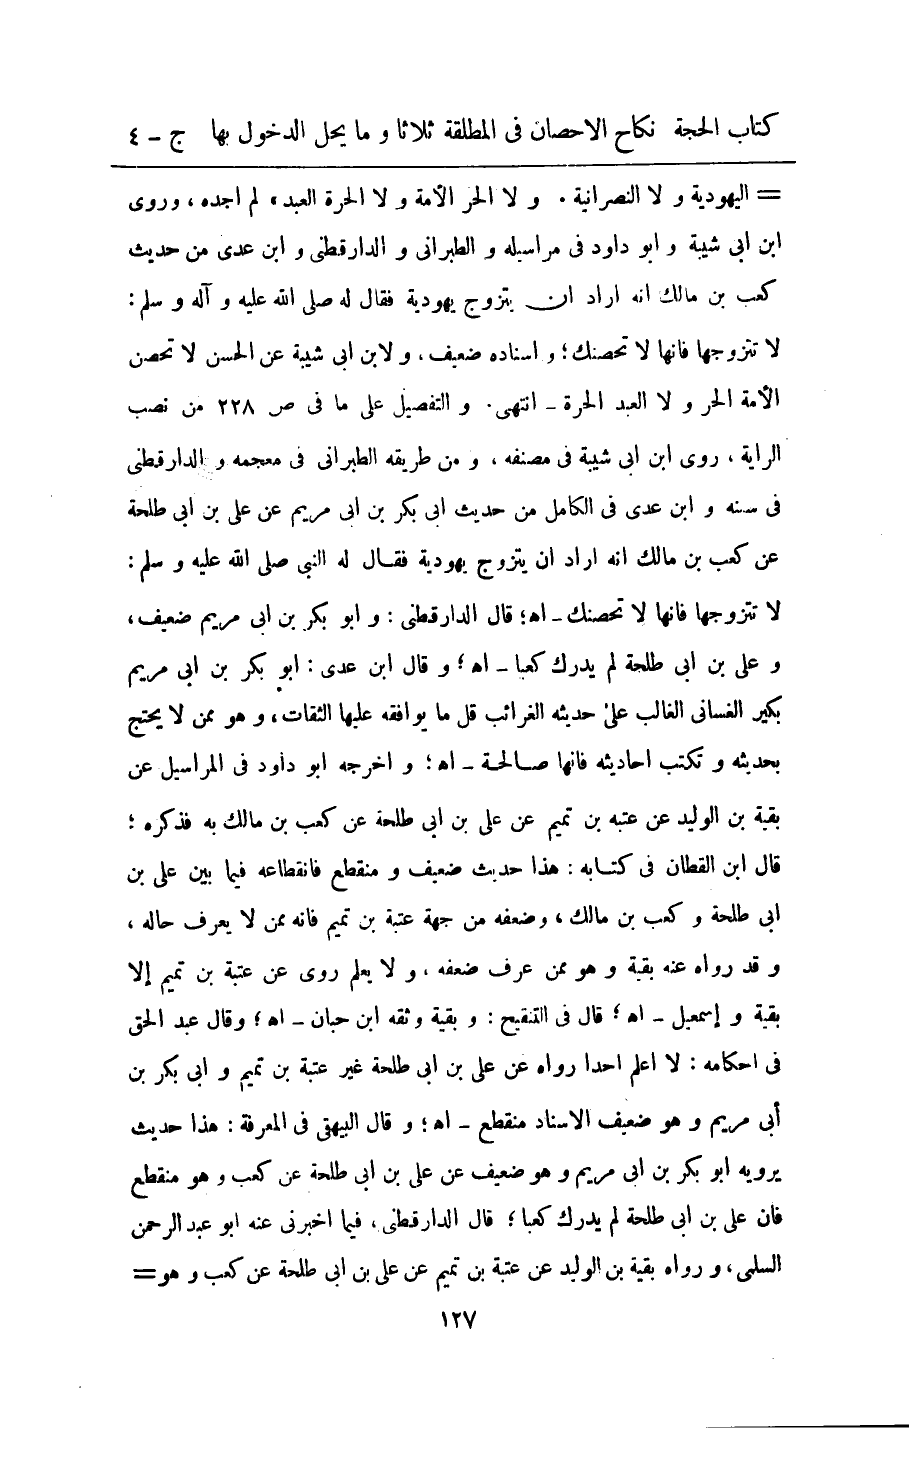 كتاب الحجة نكاح الاحصان فى المطلقة ثلاثا و ما يحل الدخول بها ج - ٤
= اليهودية و لا النصرانية . و لا الحر الأمة و لا الحرة العبد » لم اجده ، وروى
ابن ابى شيبة و ابو داود فى مراسيله و الطبرانى و الدارقطنى و ابن عدى من حديث
كعب بن مالك انه اراد ان يتزوج يهودية فقال له صلى الله عليه و آله و سلم :
لا تتزوجها فانها لا تحصنك ؛ و اسناده ضعيف ، و لابن ابى شيبة عن الحسن لا تحصن
الأمة الحر و لا العبد الحرة - انتهى . و التفصيل على ما فى ص ٢٢٨ من نصب
الراية ، روى ابن ابى شيبة فى مصنفه ، و من طريقه الطبرانى فى معجمه و الدارقطنى
فى سننه و ابن عدى فى الكامل من حديث ابى بكر بن ابى مريم عن على بن ابى طلحة
عن كعب بن مالك انه اراد ان يتزوج يهودية فقال له النبى صلى الله عليه و سلم :
لا تتزوجها فانها لا تحصنك - اه ؛ قال الدارقطنى : و ابو بكر بن ابى مريم ضعيف ،
و على بن ابى طلحة لم يدرك كعبا - اه ؛ و قال ابن عدى : ابو بكر بن ابى مريم
بكير الغسانى الغالب على حديثه الغرائب قل ما يوافقه عليها الثقات ، و هو ممن لا يحتج
بحديثه و تكتب احاديثه فانها صالحة - اه ؛ و اخرجه ابو داود فى المراسيل عن
بقية بن الوليد عن عتبه بن تميم عن على بن ابى طلحة عن كعب بن مالك به فذكره ؛
قال ابن القطان فى كتابه : هذا حديث ضعيف و منقطع فانقطاعه فيما بين على بن
ابى طلحة و كعب بن مالك ، وضعفه من جهة عتبة بن تميم فانه ممن لا يعرف حاله ،
و قد رواه عنه بقية و هو ممن عرف ضعفه ، و لا يعلم روى عن عتبة بن تميم إلا
بقية و إسمعيل - اه ؛ قال فى التنقيح : و بقية وثقه ابن حبان - اه ؛ وقال عبد الحق
فى احكامه : لا اعلم احدا رواه عن على بن ابى طلحة غير عتبة بن تميم و ابى بكر بن
أبى مريم و هو ضعيف الاسناد منقطع - اه ؛ و قال البيهقى فى المعرفة : هذا حديث
يرويه ابو بكر بن ابى مريم و هو ضعيف عن على بن ابى طلحة عن كعب و هو منقطع
فان على بن ابى طلحة لم يدرك كعبا ؛ قال الدارقطنى ، فيما اخبرنى عنه ابو عبد الرحمن
السلمى ، و رواه بقية بن الوليد عن عتبة بن تميم عن على بن ابى طلحة عن كعب و هو =
١٢٧